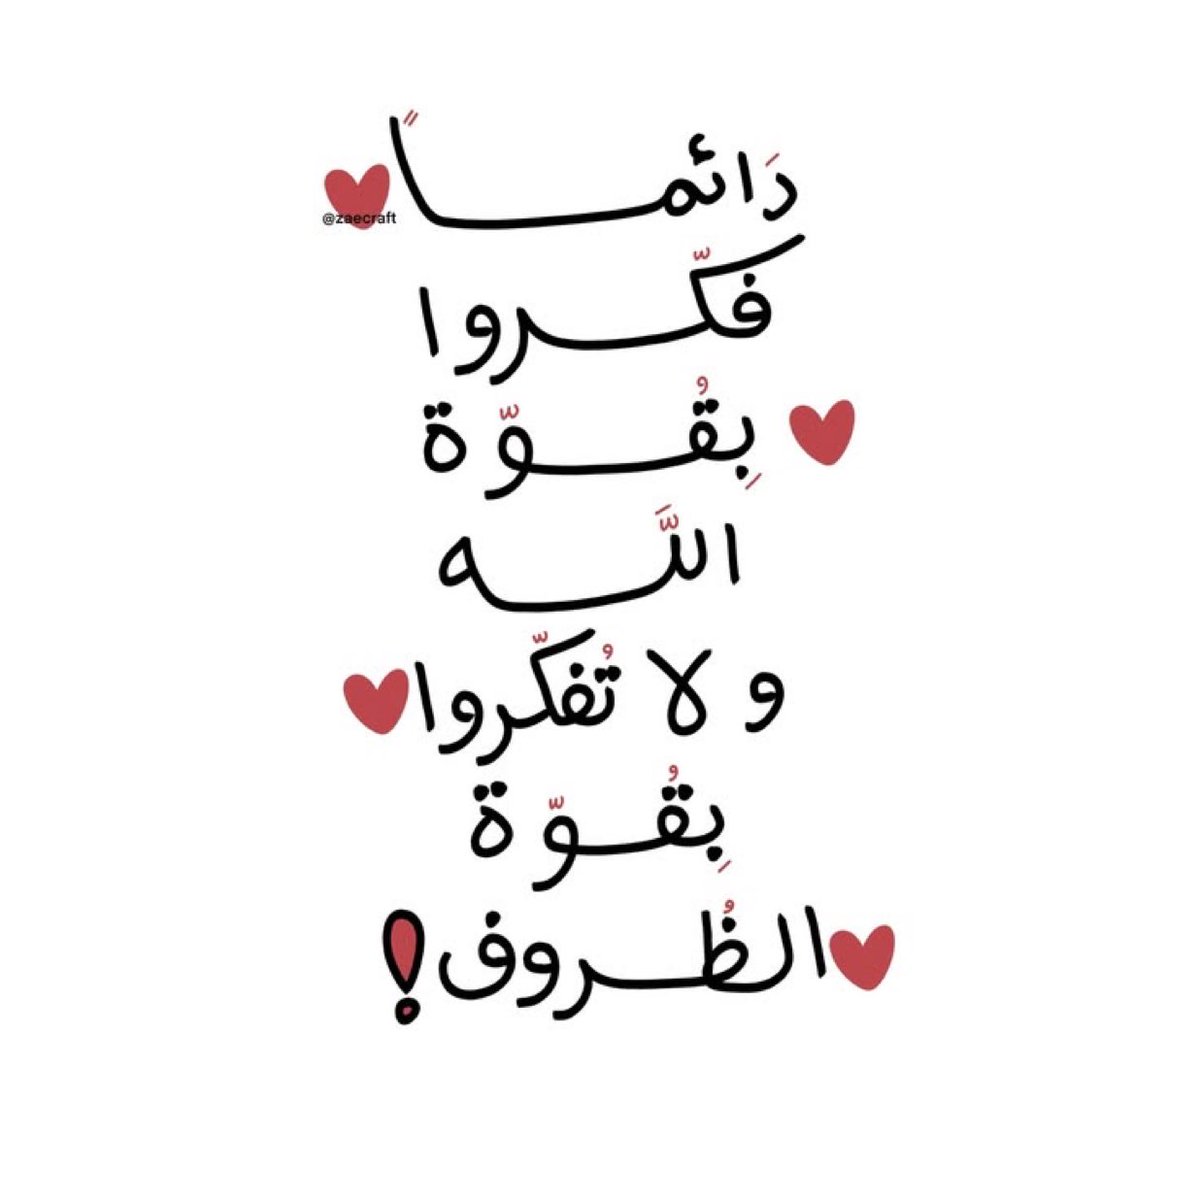 دَائماً
@zaecraft
فكّروا
بِقُوّة
اللَّه
و لا تُفكّروا
بِقُوّة
الظُروف!